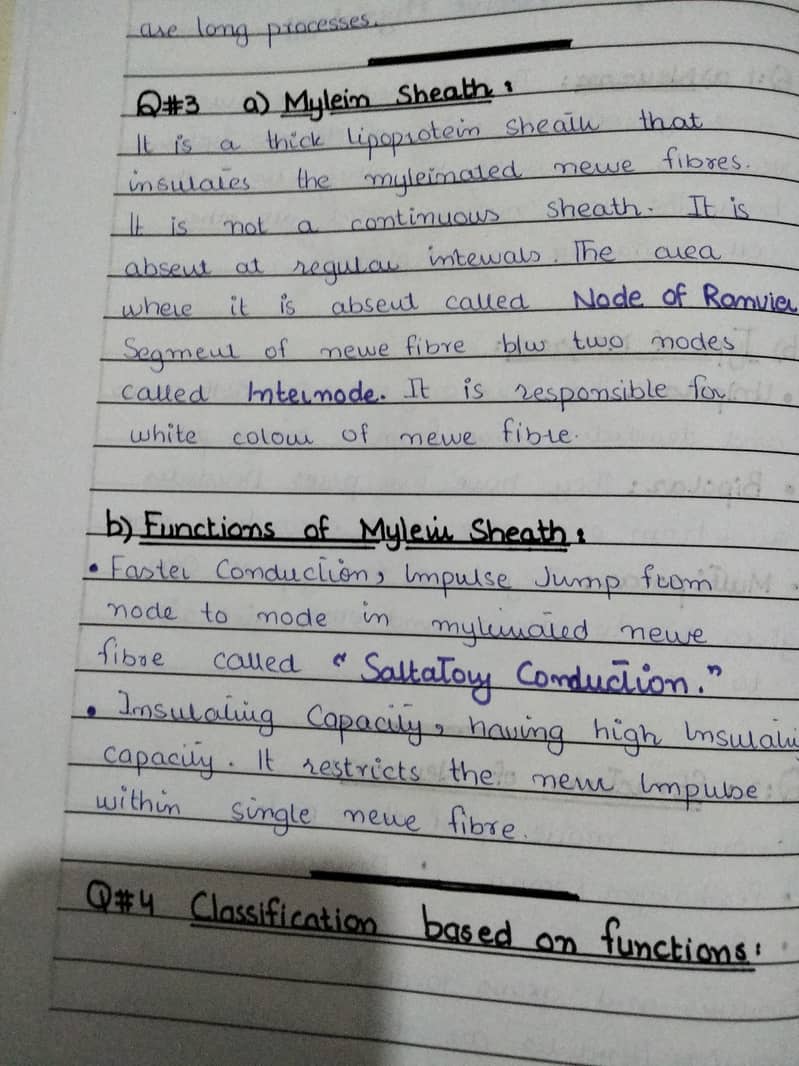 are long processes.
Q#3 a) Mylein Sheath :
It is a thick lipoprotein sheath that
insulates the myleinated nerve fibres.
It is not a continuous sheath. It is
absent at regular intervals. The area
where it is absent called Node of Ranvier
Segment of nerve fibre b/w two nodes
called Internode. It is responsible for
white colour of nerve fibre.
b) Functions of Mylein Sheath :
• Faster Conduction, Impulse Jump from
node to node in myleinated nerve
fibre called " Saltatory Conduction."
• Insulating Capacity, having high Insulati
capacity. It restricts the nerve Impulse
within single nerve fibre.
Q#4 Classification based on functions :